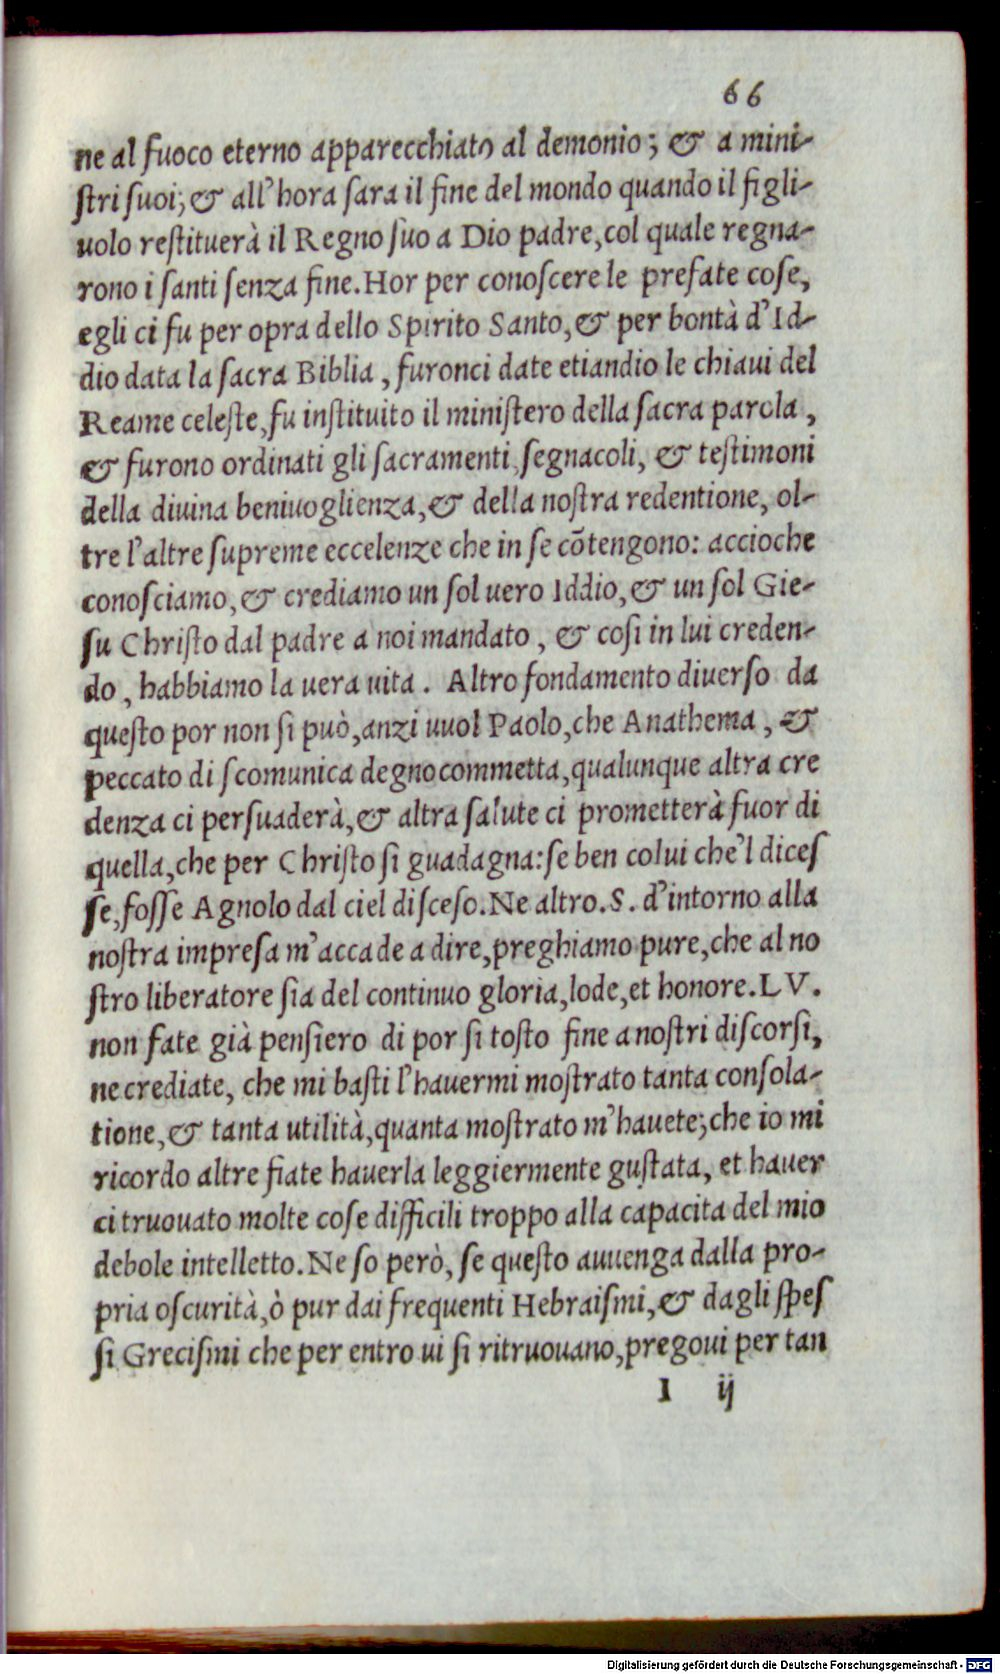 66
ne al fuoco eterno apparecchiato al demonio; & a mini-
ſtri ſuoi; & all'hora ſara il fine del mondo quando il figli-
uolo reſtituerà il Regno ſuo a Dio padre, col quale regna-
rono i ſanti ſenza fine. Hor per conoſcere le prefate coſe,
egli ci fu per opra dello Spirito Santo, & per bontà d'Id-
dio data la ſacra Biblia, furonci date etiandio le chiaui del
Reame celeſte, fu inſtituito il miniſtero della ſacra parola,
& furono ordinati gli ſacramenti, ſegnacoli, & teſtimoni
della diuina beniuoglienza, & della noſtra redentione, ol-
tre l'altre ſupreme eccelenze che in ſe cõtengono: accioche
conoſciamo, & crediamo un ſol uero Iddio, & un ſol Gie-
ſu Chriſto dal padre a noi mandato, & coſi in lui creden-
do, habbiamo la uera uita. Altro fondamento diuerſo da
queſto por non ſi può, anzi uuol Paolo, che Anathema, &
peccato di ſcomunica degno commetta, qualunque altra cre
denza ci perſuaderà, & altra ſalute ci prometterà fuor di
quella, che per Chriſto ſi guadagna: ſe ben colui che'l diceſ
ſe, foſſe Agnolo dal ciel diſceſo. Ne altro. S. d'intorno alla
noſtra impreſa m'accade a dire, preghiamo pure, che al no
ſtro liberatore ſia del continuo gloria, lode, et honore. L V.
non fate già penſiero di por ſi toſto fine a noſtri diſcorſi,
ne crediate, che mi baſti l'hauermi moſtrato tanta conſola-
tione, & tanta utilità, quanta moſtrato m'hauete; che io mi
ricordo altre fiate hauerla leggiermente guſtata, et hauer
ci truouato molte coſe difficili troppo alla capacita del mio
debole intelletto. Ne ſo però, ſe queſto auuenga dalla pro-
pria oſcurità, ò pur dai frequenti Hebraiſmi, & dagli ſpeſ
ſi Greciſmi che per entro ui ſi ritruouano, pregoui per tan
I ij
Digitalisierung gefördert durch die Deutsche Forschungsgemeinschaft - DFG